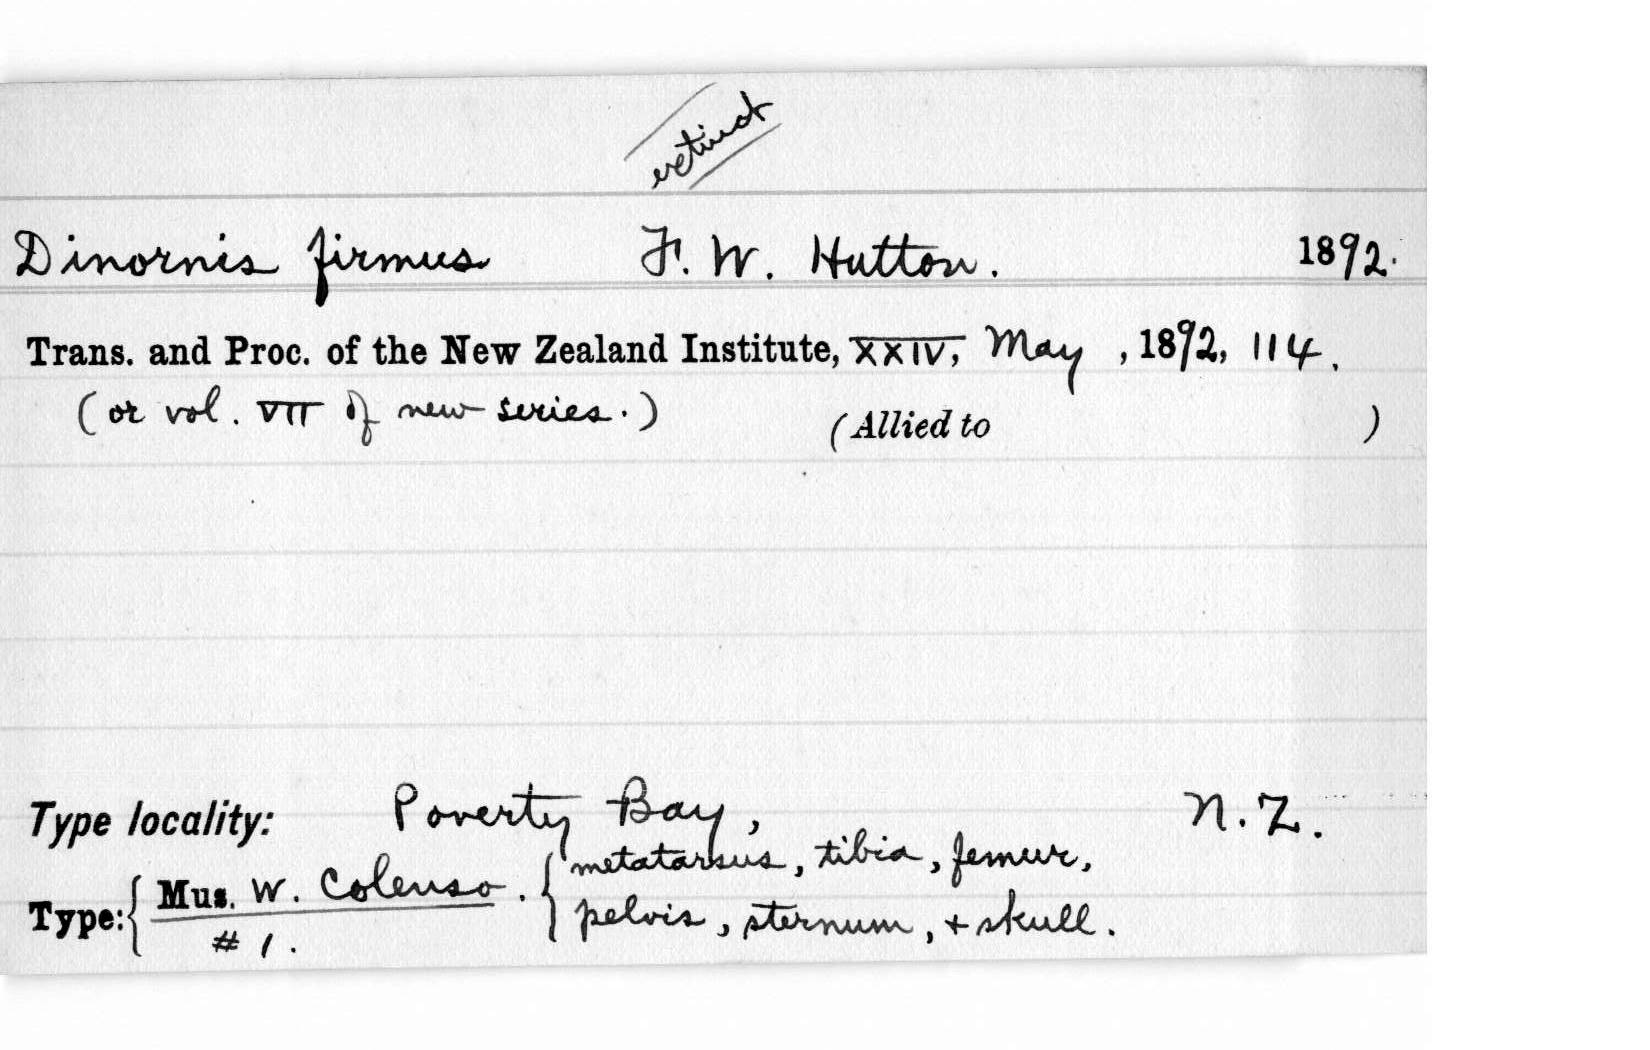 extinct
Dinornis firmus F. W. Hutton. 1892.
Trans. and Proc. of the New Zealand Institute, XXIV, May, 1892, 114.
(or vol. VII of new series.) (Allied to )
Type locality: Poverty Bay, N. Z.
Type: { Mus. W. Colenso. { metatarsus, tibia, femur,
# 1. pelvis, sternum, + skull.